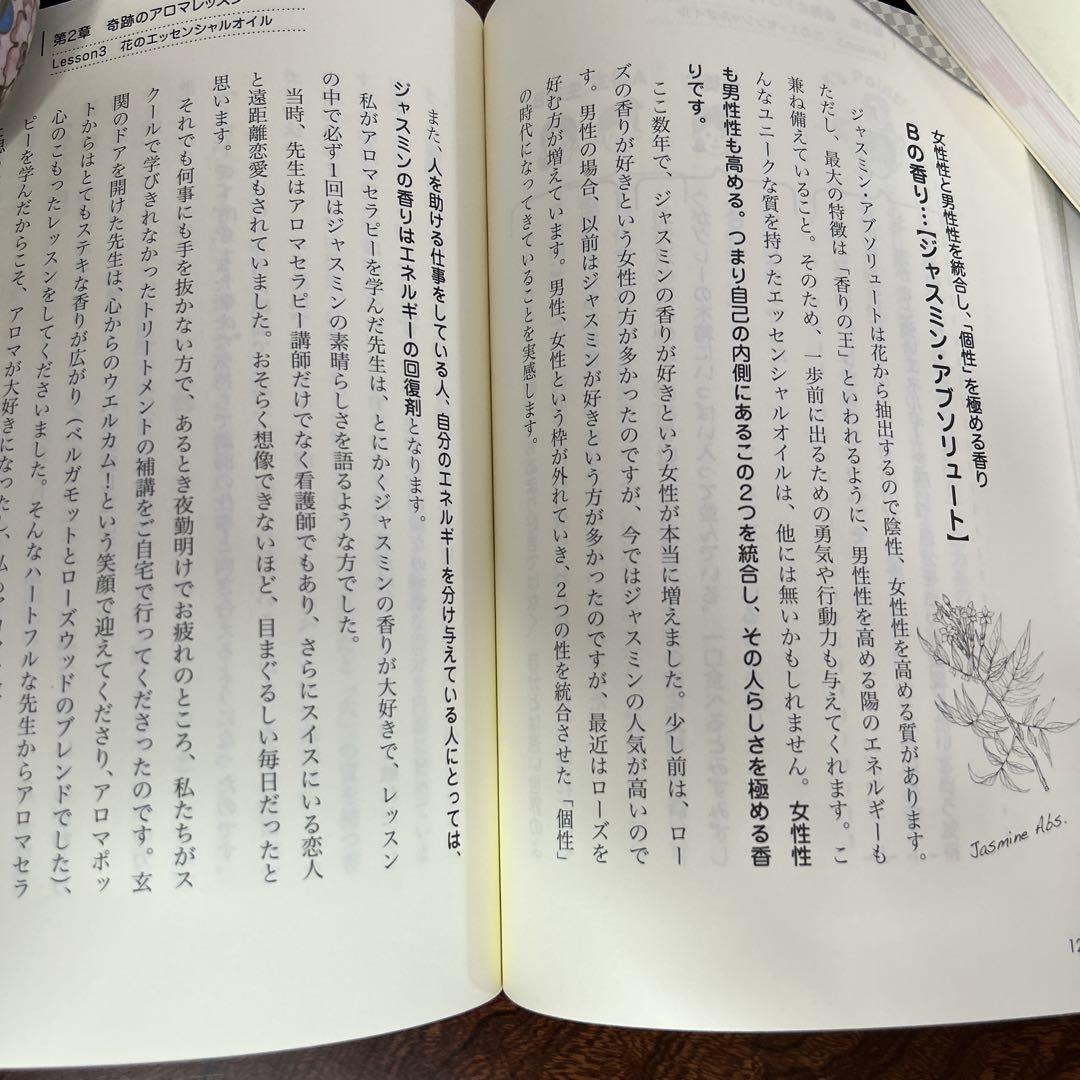 女性性と男性性を統合し、「個性」を極める香り
Bの香り…【ジャスミン・アブソリュート】
ジャスミン・アブソリュートは花から抽出するので陰性、女性性を高める質があります。
ただし、最大の特徴は「香りの王」といわれるように、男性性を高める陽のエネルギーも
兼ね備えていること。そのため、一歩前に出るための勇気や行動力も与えてくれます。こ
んなユニークな質を持ったエッセンシャルオイルは、他には無いかもしれません。女性性
も男性性も高める。つまり自己の内側にあるこの2つを統合し、その人らしさを極める香
りです。
ここ数年で、ジャスミンの香りが好きという女性が本当に増えました。少し前は、ロー
ズの香りが好きという女性の方が多かったのですが、今ではジャスミンの人気が高いので
す。男性の場合、以前はジャスミンが好きという方が多かったのですが、最近はローズを
好む方が増えています。男性、女性という枠が外れていき、2つの性を統合させた「個性」
の時代になってきていることを実感します。
Jasmine Abs.
12
第2章 奇跡のアロマレッスン
Lesson3 花のエッセンシャルオイル
また、人を助ける仕事をしている人、自分のエネルギーを分け与えている人にとっては、
ジャスミンの香りはエネルギーの回復剤となります。
私がアロマセラピーを学んだ先生は、とにかくジャスミンの香りが大好きで、レッスン
の中で必ず1回はジャスミンの素晴らしさを語るような方でした。
当時、先生はアロマセラピー講師だけでなく看護師でもあり、さらにスイスにいる恋人
と遠距離恋愛もされていました。おそらく想像できないほど、目まぐるしい毎日だったと
思います。
それでも何事にも手を抜かない方で、あるとき夜勤明けでお疲れのところ、私たちがス
クールで学びきれなかったトリートメントの補講をご自宅で行ってくださったのです。玄
関のドアを開けた先生は、心からのウエルカム！という笑顔で迎えてくださり、アロマポッ
トからはとてもステキな香りが広がり（ベルガモットとローズウッドのブレンドでした）、
心のこもったレッスンをしてくださいました。そんなハートフルな先生からアロマセラ
ピーを学んだからこそ、アロマが大好きになったし、私の